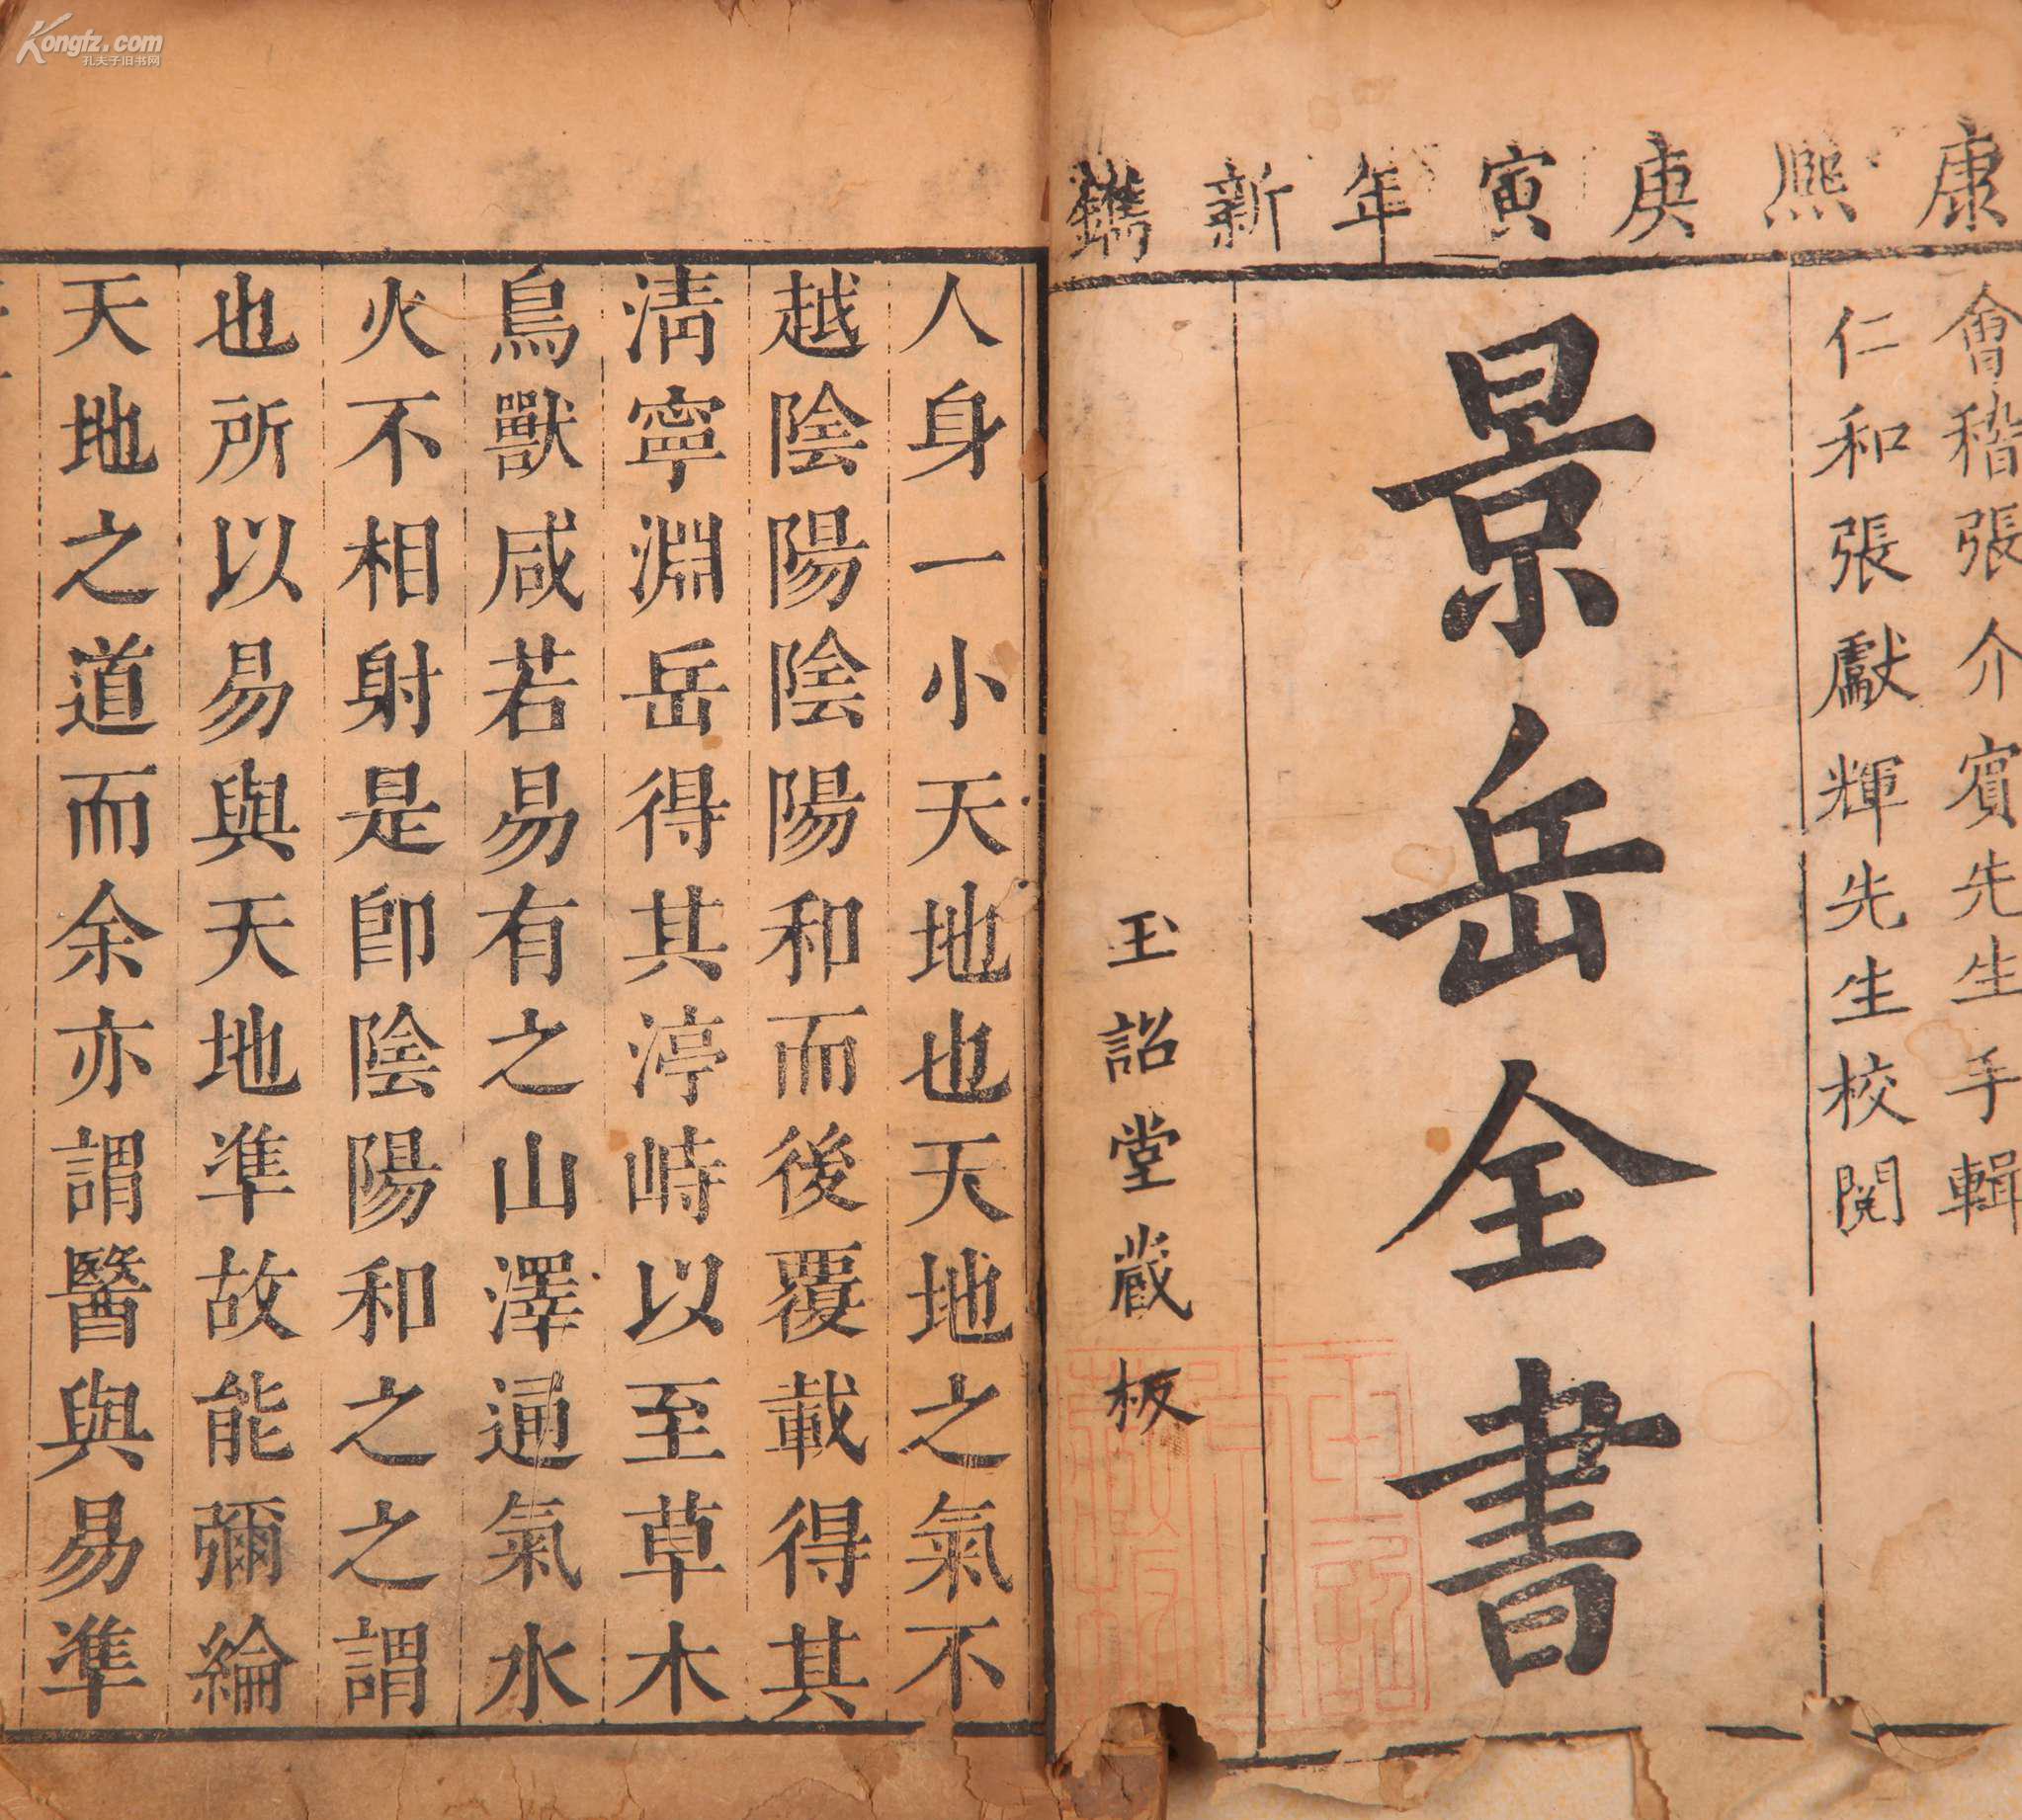 Kongfz.com
孔夫子旧书网
康熙庚寅年新鐫
會稽張介賓先生手輯
仁和張獻輝先生校閱
景岳全書
玉詔堂藏板
人身一小天地也天地之氣不
越陰陽陰陽和而後覆載得其
清寧淵岳得其渟峙以至草木
鳥獸咸若易有之山澤通氣水
火不相射是卽陰陽和之之謂
也所以易與天地準故能彌綸
天地之道而余亦謂醫與易準